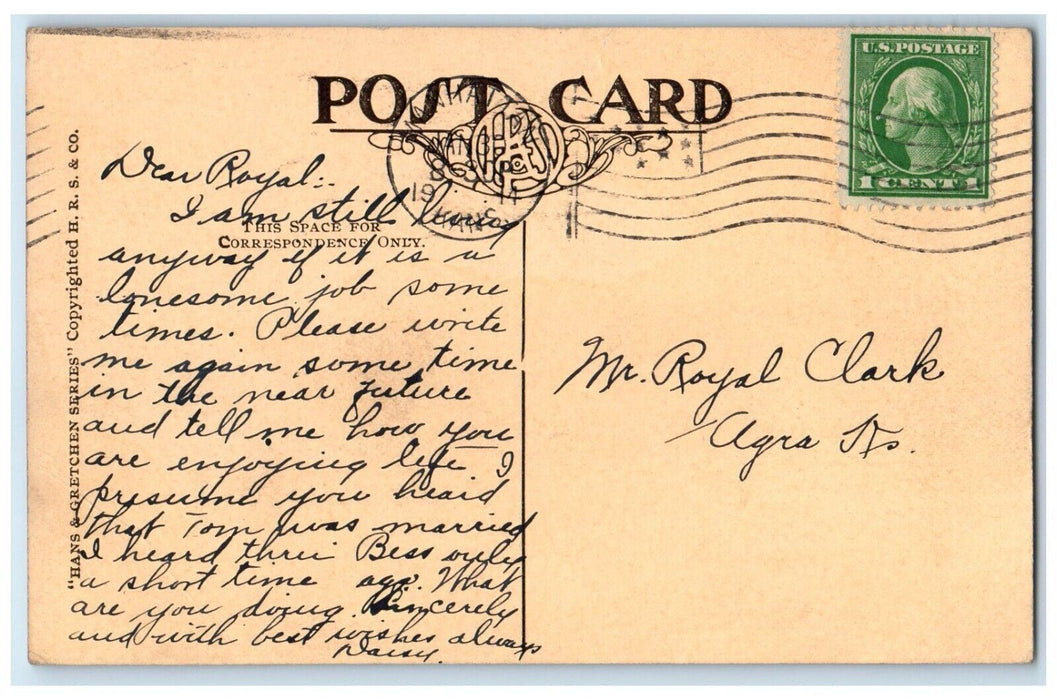 POST CARD
U.S. POSTAGE
1 CENT 1
JAN
8
1914
KANS
"HANS & GRETCHEN SERIES" Copyrighted H. R. S. & CO.
THIS SPACE FOR
CORRESPONDENCE ONLY.
Dear Royal:.
I am still living
anyway if it is a
lonesome job some
times. Please write
me again some time
in the near future
and tell me how you
are enjoying life I
presume you heard
that Tom was married
I heard thru Bess only
a short time ago. What
are you doing. Sincerely
and with best wishes always
Daisy.
Mr. Royal Clark
Agra Ks.